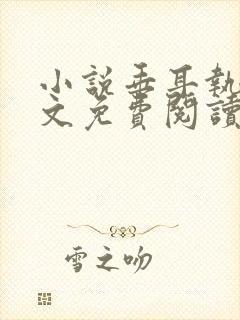 小說垂耳執
文免費閱讀
雪之吻